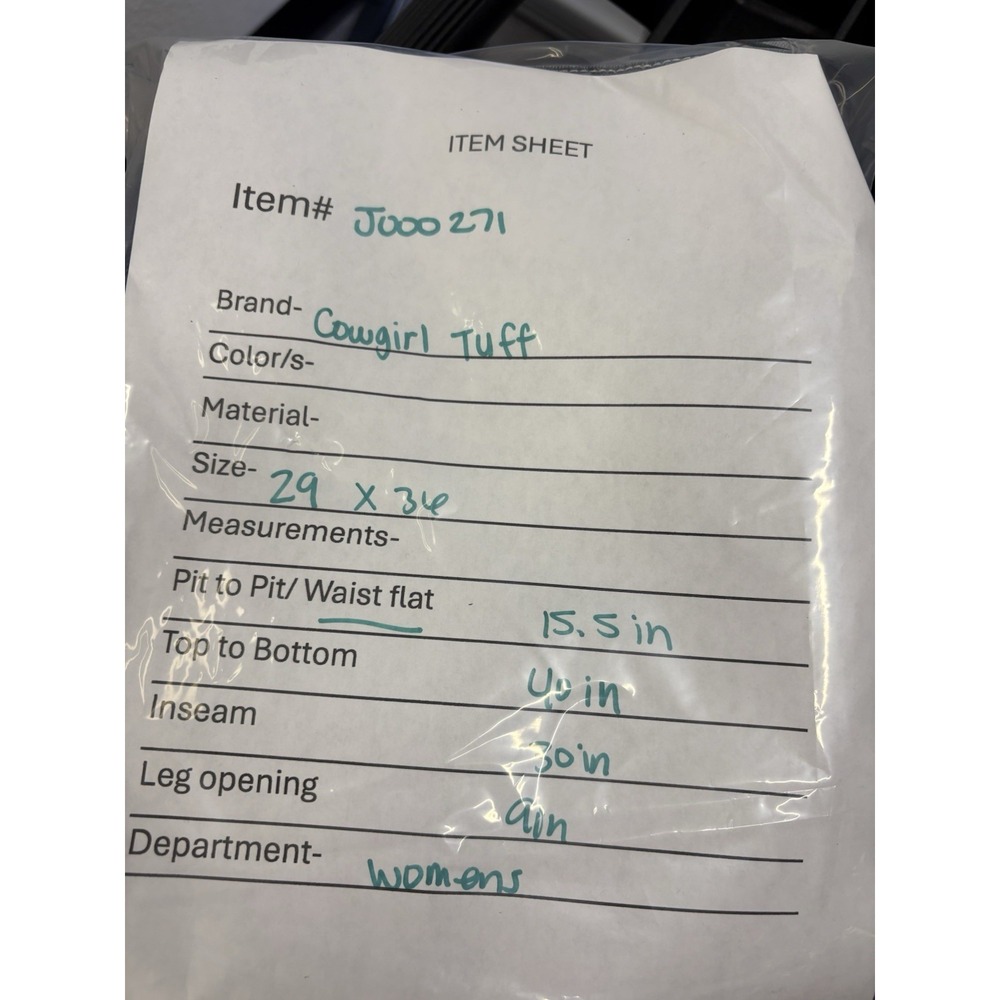 ITEM SHEET
Item# J000271
Brand- Cowgirl Tuff
Color/s-
Material-
Size- 29 x 36
Measurements-
Pit to Pit/ Waist flat 15.5 in
Top to Bottom 40 in
Inseam 30in
Leg opening 9in
Department- womens